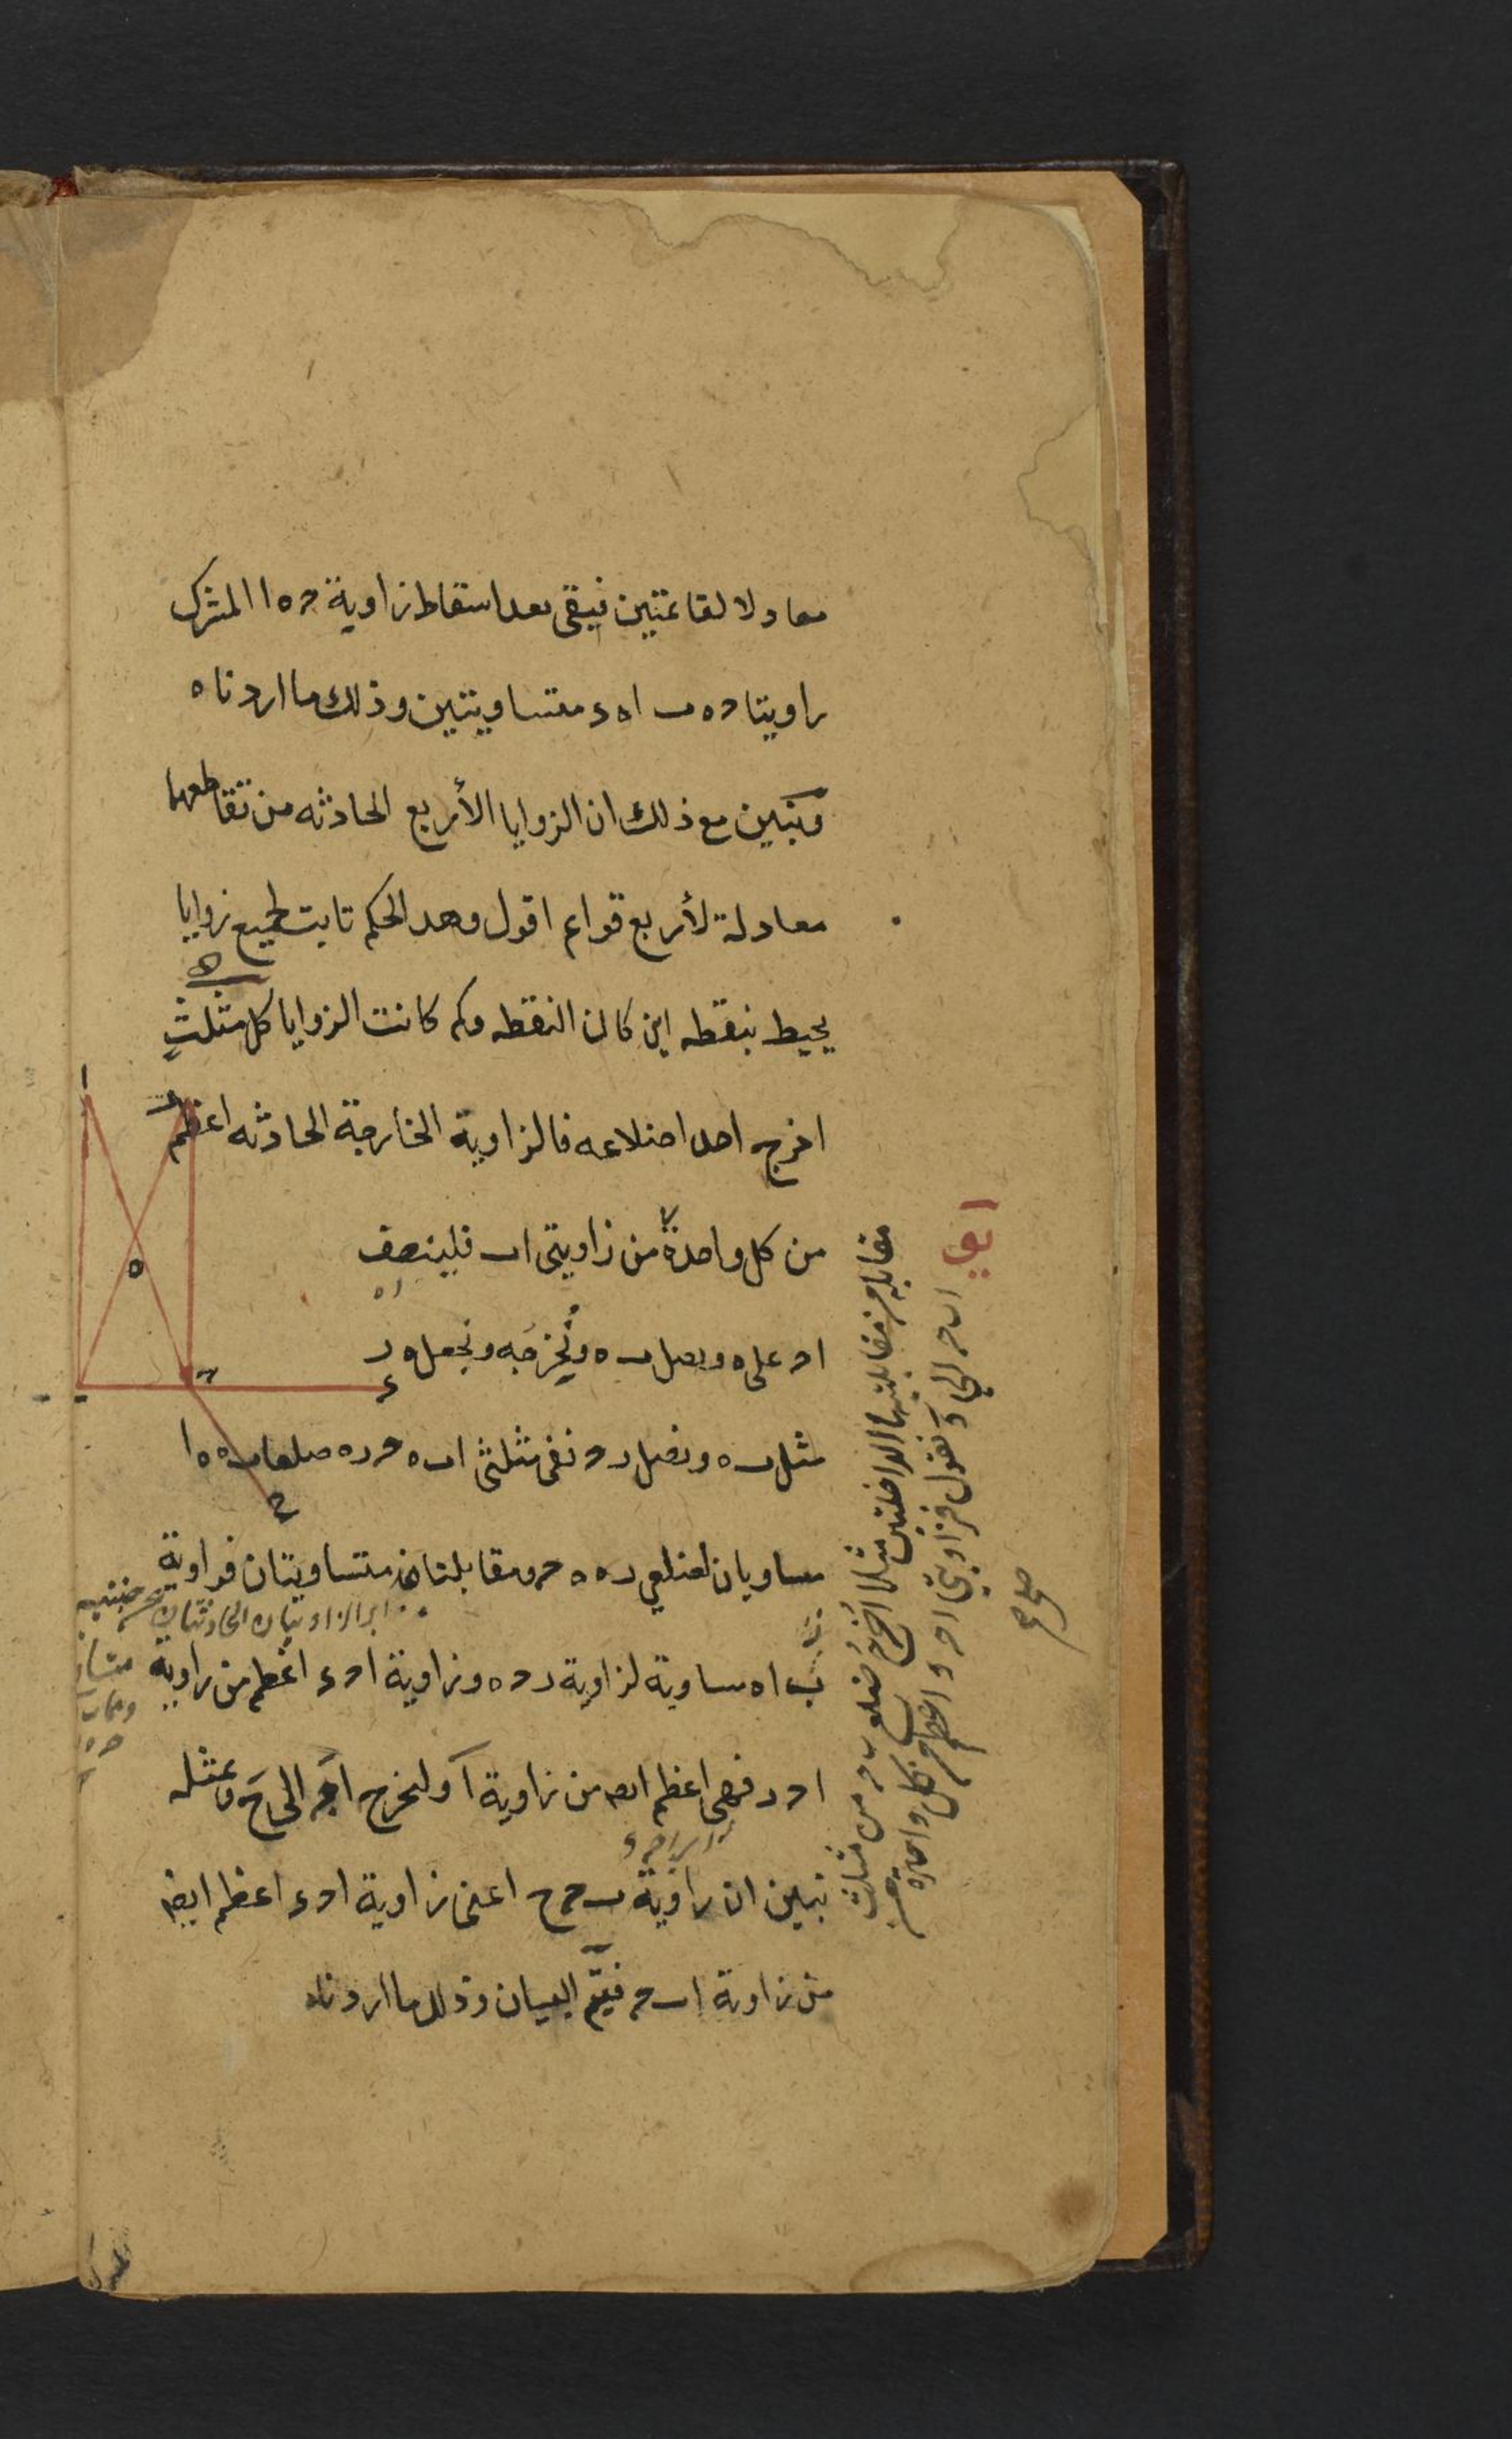 معادلا لقائمتين فيبقى بعد اسقاط زاوية حه ا المشترك
زاويتا حه ب اه ء متساويتين وذلك ما اردناه
وتبين مع ذلك ان الزوايا الأربع الحادثه من تقاطعهما
معادلة لأربع قوائم اقول وهذا الحكم ثابت لجميع زوايا
يحيط بنقطه اين كان النقطه وكم كانت الزوايا كل مثلثٍ
اخرج احد اضلاعه فالزاوية الخارجة الحادثه اعظم
من كل واحدة من زاويتى اب فلينصف
اح على ه ويصل ب ه ونُخرجه ونجعل ه ر
مثل ب ه ونصل رح نفى مثلثى اب ه ح ر ه ضلعا ب ه ه ا
مساويان لضلعي ر ه ه ح ومقابلتاه متساويتان فزاوية
ب اه مساوية لزاوية ر ح ه وزاوية اح ء اعظم من زاوية
اح ر فهى اعظم ايض من زاوية آ ولنخرج اح الى ح وبمثله
تبين ان زاوية ب ح ح اعنى زاوية اح ء اعظم ايض
من زاوية اب ح فيتم البيان وذلك ما اردناه
ا
ه
ء
ح
مقابلتيها الداخلتين مثلا اُخرج ضلع ب ح من مثلث
اب ح الى ء نقول فزاويتى اح ء اعظم من كل واحدة